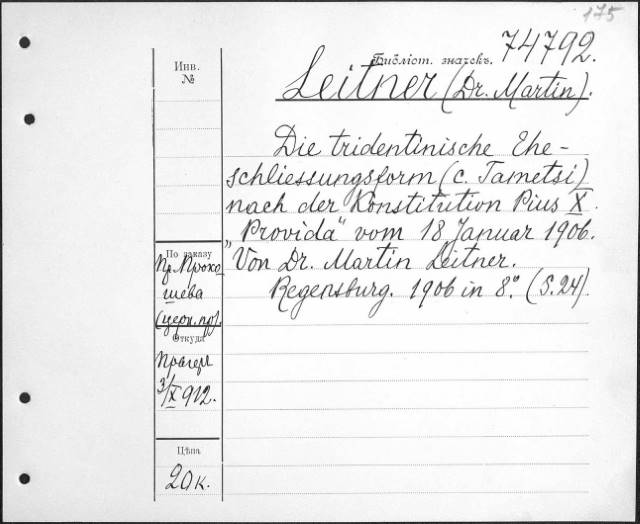 175
Библіот. значекъ. 74792.
Инв.
№
Leitner (Dr. Martin).
Die tridentinische Ehe-
schliessungsform (c. Tametsi)
nach der Konstitution Pius X.
„Provida" vom 18 Januar 1906.
Von Dr. Martin Leitner.
Regensburg. 1906 in 8°. (S. 24).
По заказу
Пр. Прохо
шева
(церк. пр).
Откуда
Прагеръ
3/X 912.
Цѣна
20 к.